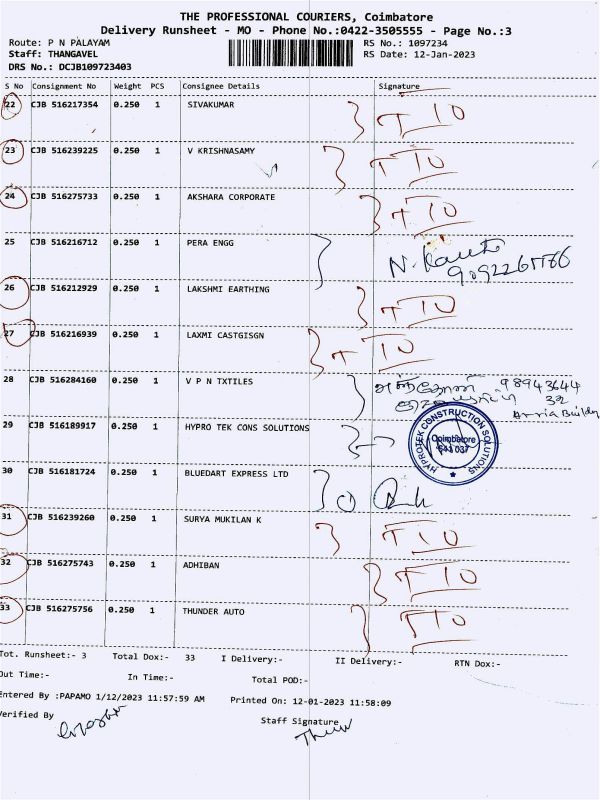 THE PROFESSIONAL COURIERS, Coimbatore
Delivery Runsheet - MO - Phone No.:0422-3505555 - Page No.:3
Route: P N PALAYAM RS No.: 1097234
Staff: THANGAVEL RS Date: 12-Jan-2023
DRS No.: DCJB109723403
S No Consignment No Weight PCS Consignee Details Signature
22 CJB 516217354 0.250 1 SIVAKUMAR TTO
23 CJB 516239225 0.250 1 V KRISHNASAMY TTO
24 CJB 516275733 0.250 1 AKSHARA CORPORATE TTO
25 CJB 516216712 0.250 1 PERA ENGG
26 CJB 516212929 0.250 1 LAKSHMI EARTHING TTO
27 CJB 516216939 0.250 1 LAXMI CASTGISGN TTO
28 CJB 516284160 0.250 1 V P N TXTILES 98943644
32
29 CJB 516189917 0.250 1 HYPRO TEK CONS SOLUTIONS
HYPROTEK CONSTRUCTION SOLUTIONS
Coimbatore
641 037
30 CJB 516181724 0.250 1 BLUEDART EXPRESS LTD
31 CJB 516239260 0.250 1 SURYA MUKILAN K TTO
32 CJB 516275743 0.250 1 ADHIBAN TTO
33 CJB 516275756 0.250 1 THUNDER AUTO TTO
Tot. Runsheet:- 3 Total Dox:- 33 I Delivery:- II Delivery:- RTN Dox:-
Out Time:- In Time:- Total POD:-
Entered By :PAPAMO 1/12/2023 11:57:59 AM Printed On: 12-01-2023 11:58:09
Verified By Staff Signature